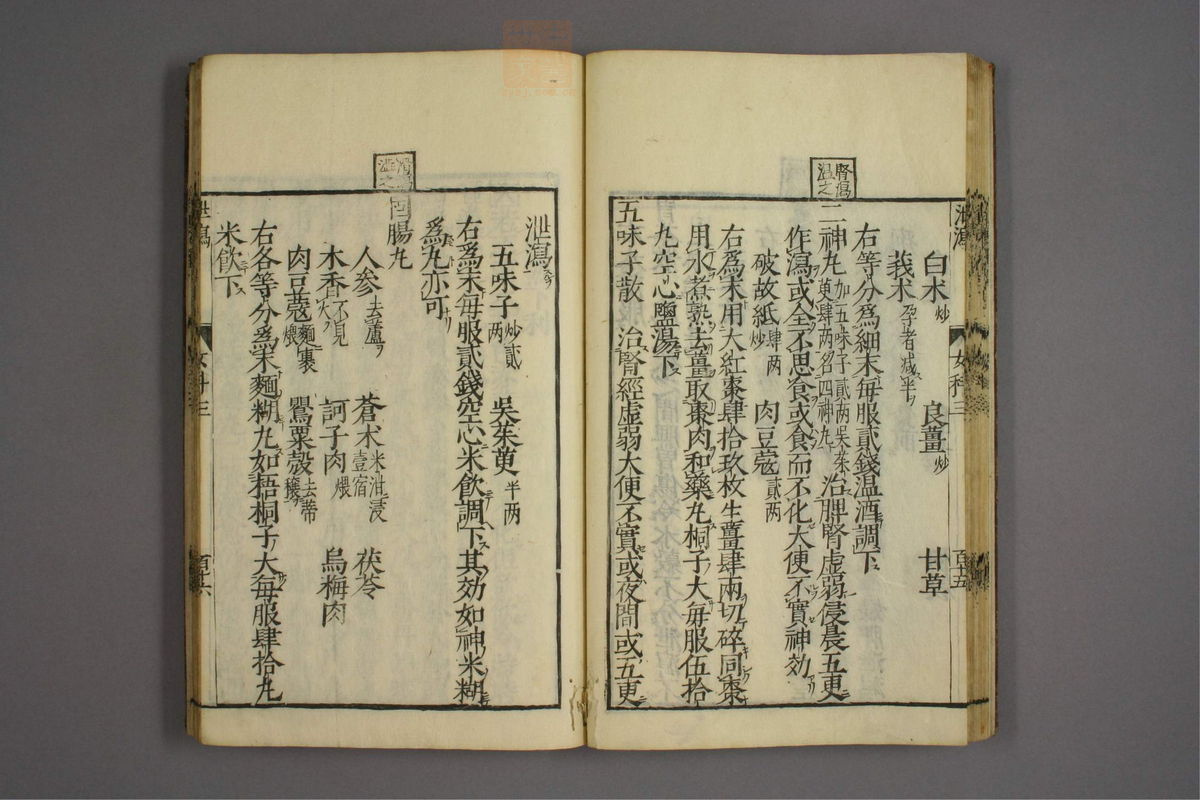 泄瀉
女科三
百十五
白朮炒 良薑炒 甘草
莪朮孕者减半
右等分爲細末每服貳錢温酒調下
腎瀉
温之
二神丸加五味子貳两吳茱萸肆两名四神丸治脾腎虛弱侵晨五更
作瀉或全不思食或食而不化大便不實神効
破故紙肆两炒 肉豆蔻貳两
右爲末用大紅棗肆拾玖枚生薑肆兩切碎同棗
用水煮熟去薑取棗肉和藥丸桐子大每服伍拾
丸空心鹽湯下
五味子散 治腎經虛弱大便不實或夜間或五更
泄瀉
五味子炒貳两 吳茱萸半两
右爲末每服貳錢空心米飲調下其効如神米糊
爲丸亦可
固腸丸
人參去蘆 蒼朮米泔浸壹宿 茯苓
木香不見火 訶子肉煨 烏梅肉
肉豆蔻麵裹煨 罌粟殼去蒂穰
右各等分爲末麵糊丸如梧桐子大每服肆拾丸
米飲下
泄瀉
女科三
百十六